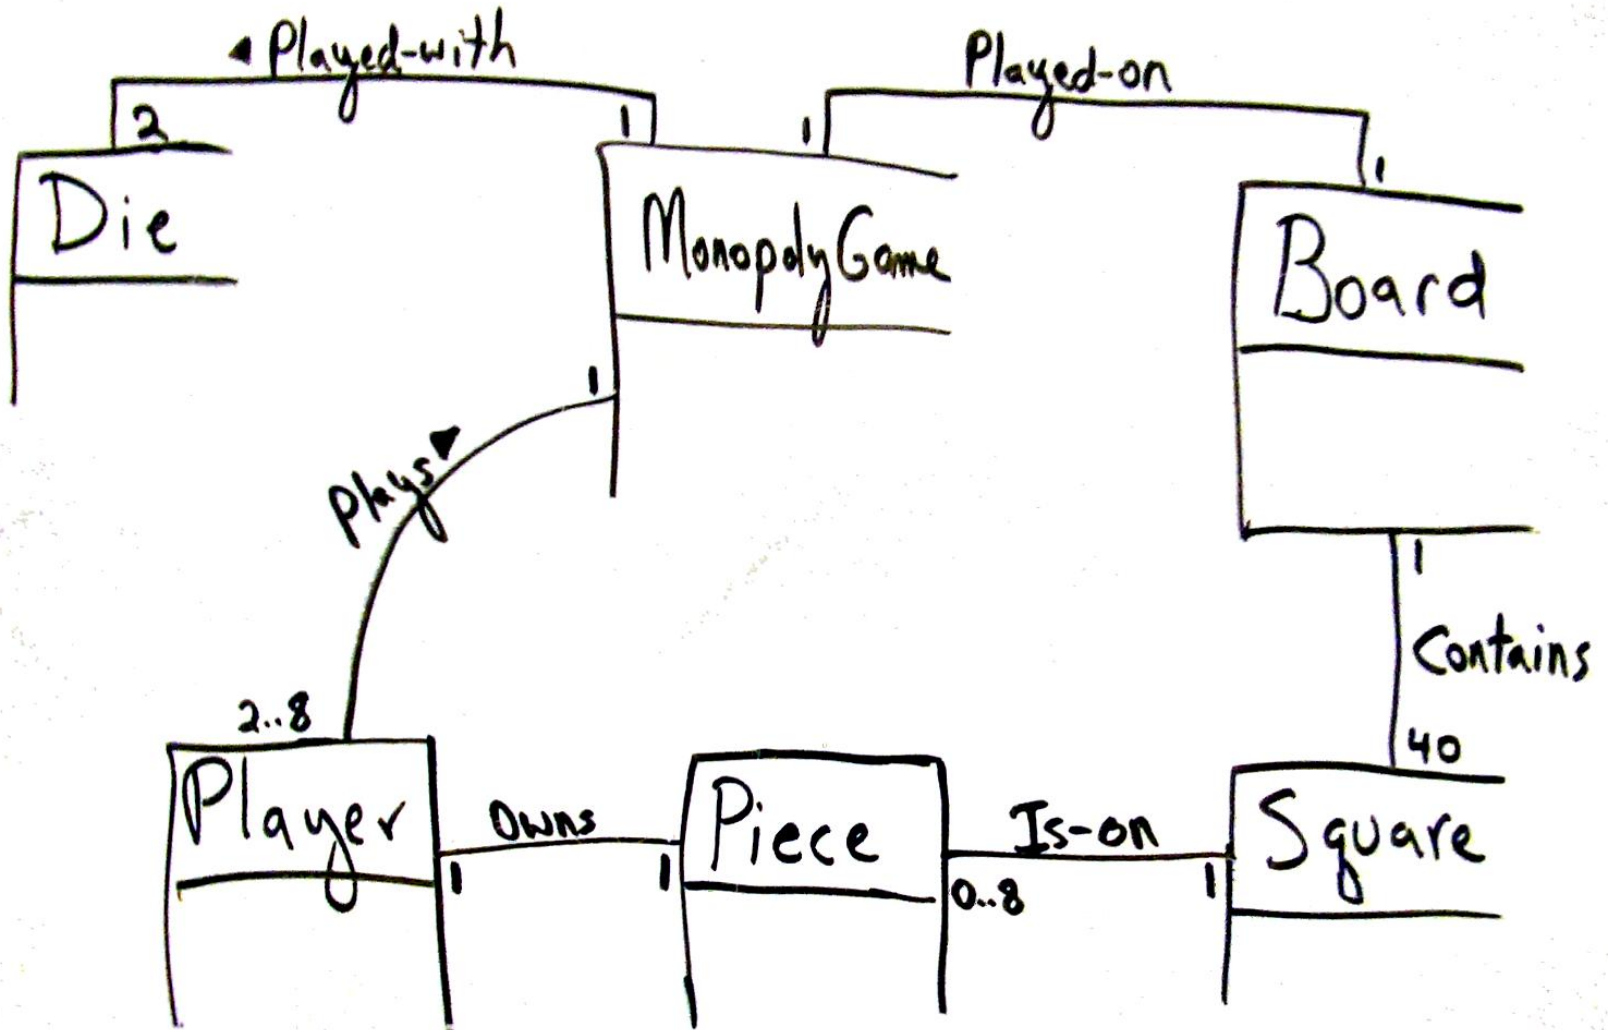 Played-with
Played-on
2
1
1
1
Die
MonopolyGame
Board
1
Plays
1
Contains
2..8
40
Player
Owns
Piece
Is-on
Square
1
1
0..8
1